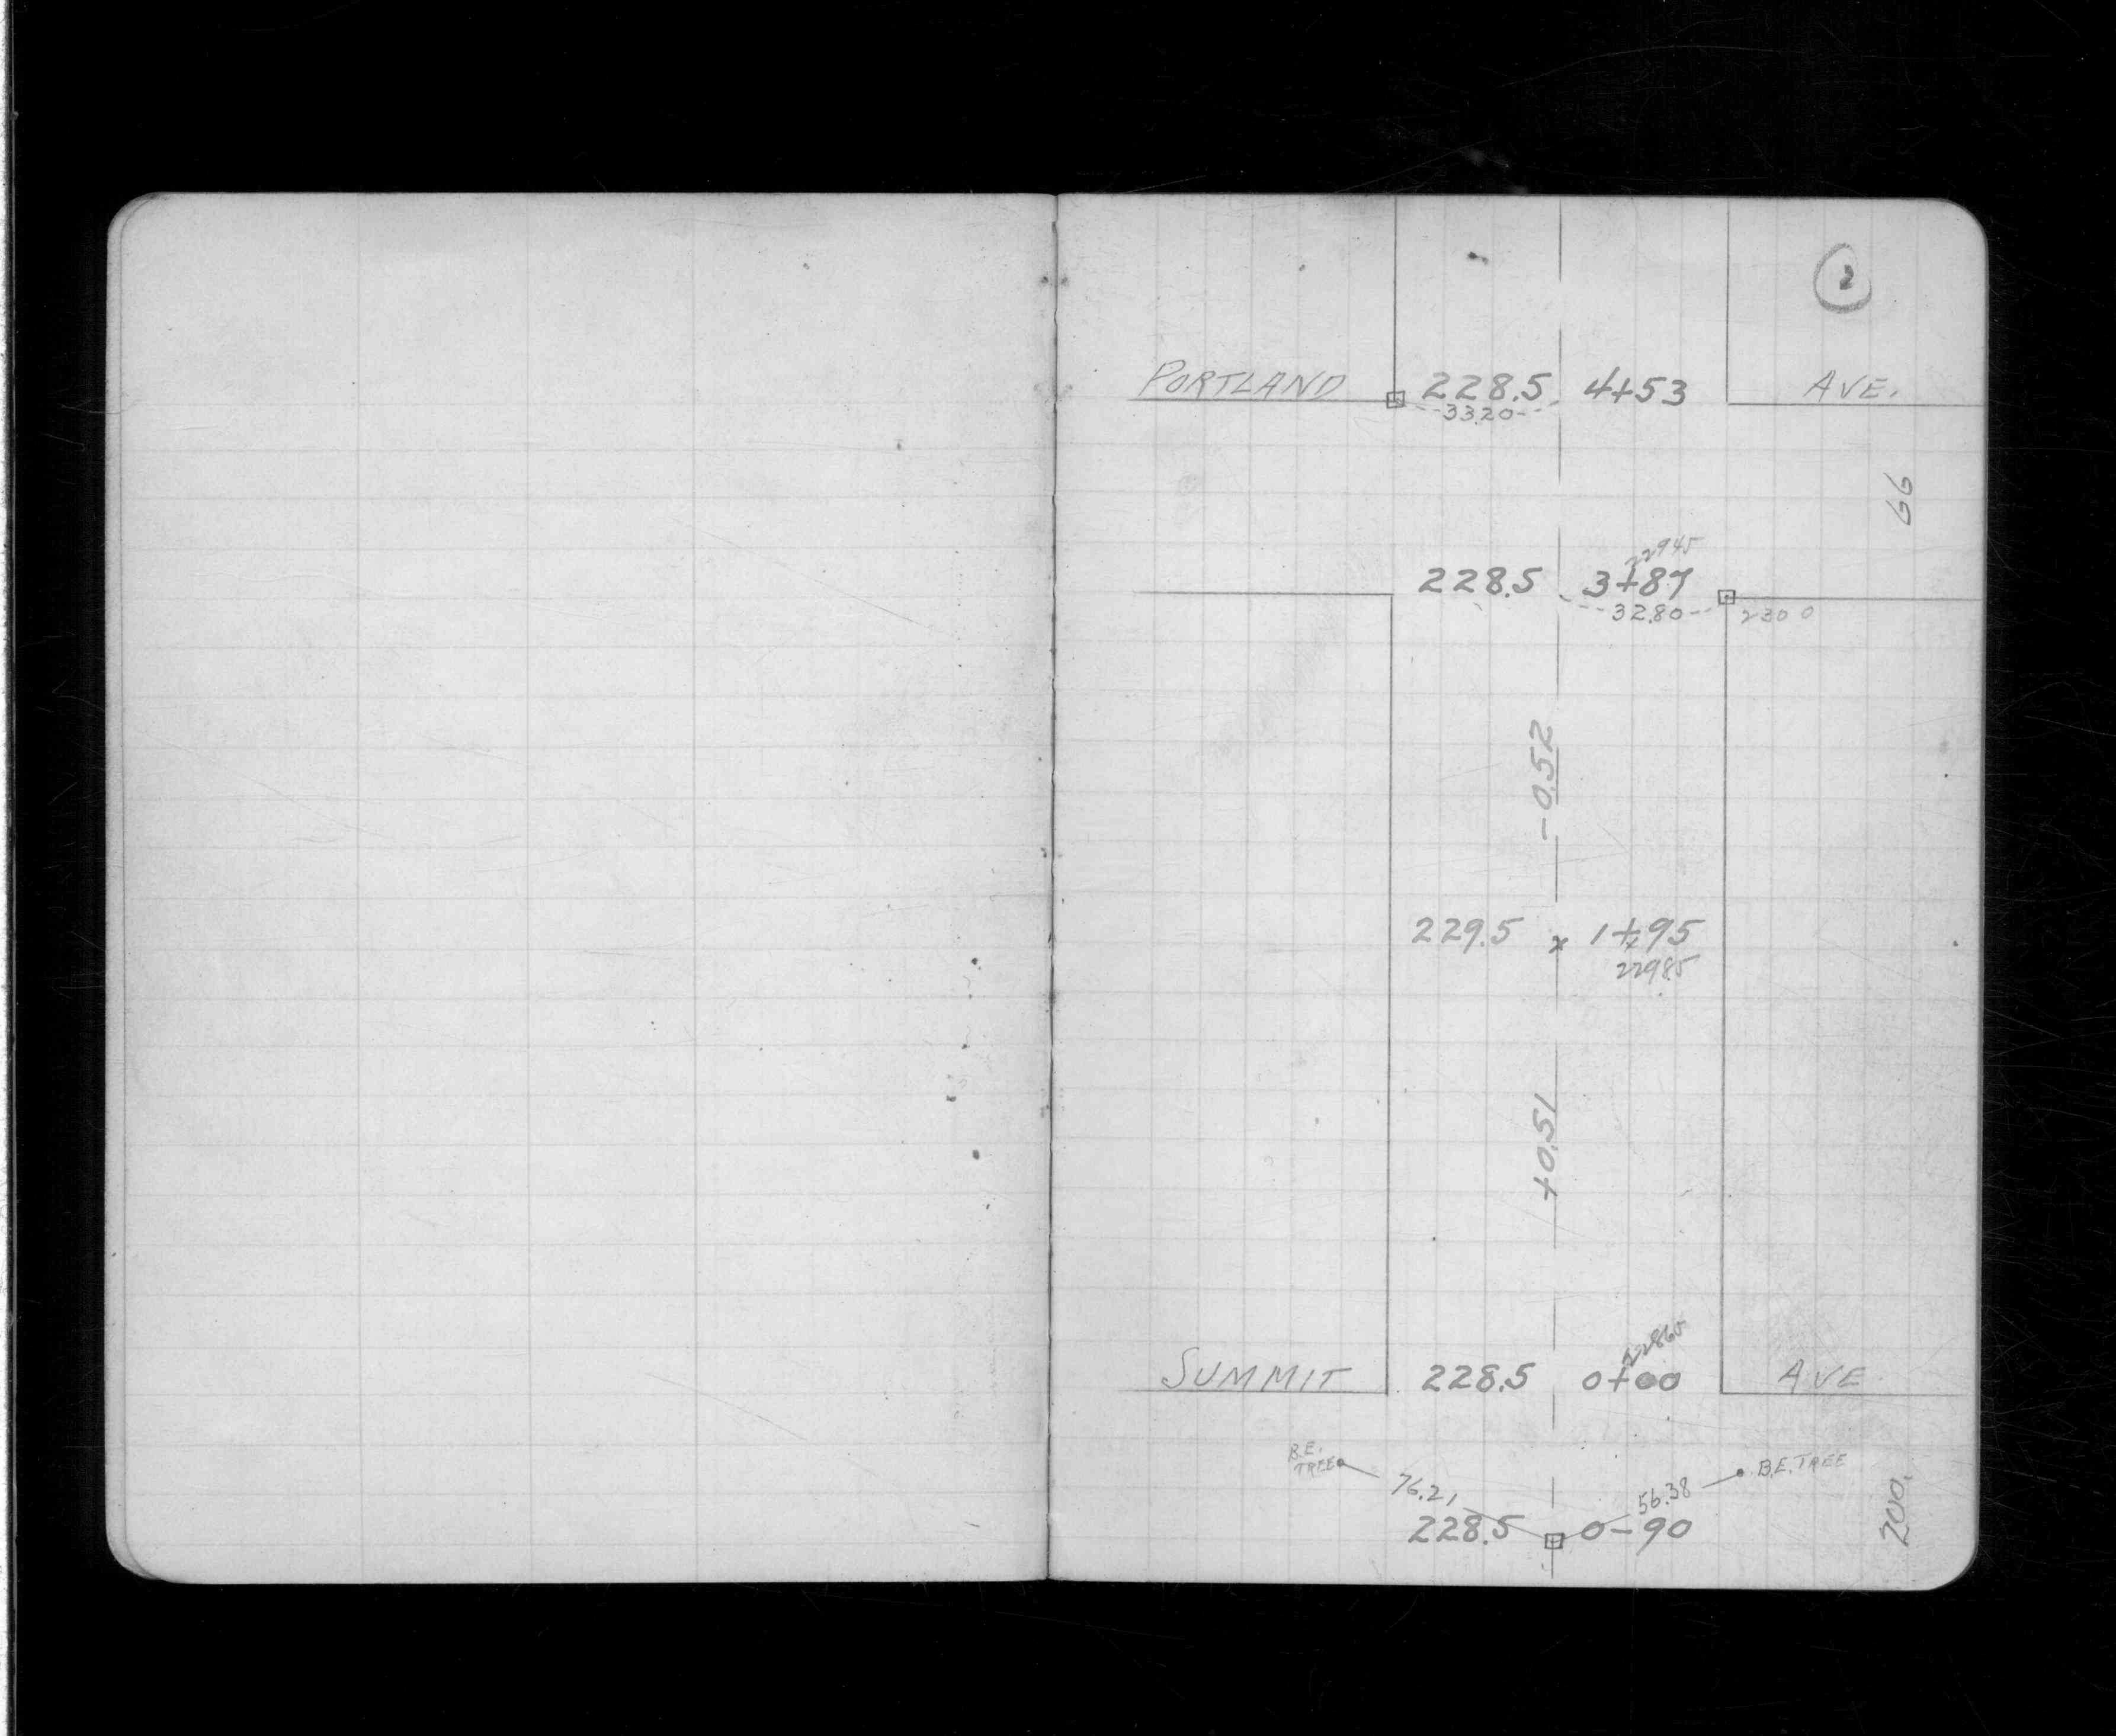 2
PORTLAND 228.5 4+53 AVE.
33.20
66
229 45
228.5 3+87
32.80 230 0
-0.52
229.5 x 1+95
229 85
+0.51
228 60
SUMMIT 228.5 0+00 AVE.
B.E. TREE B.E. TREE
76.21 56.38
228.5 0-90
200.